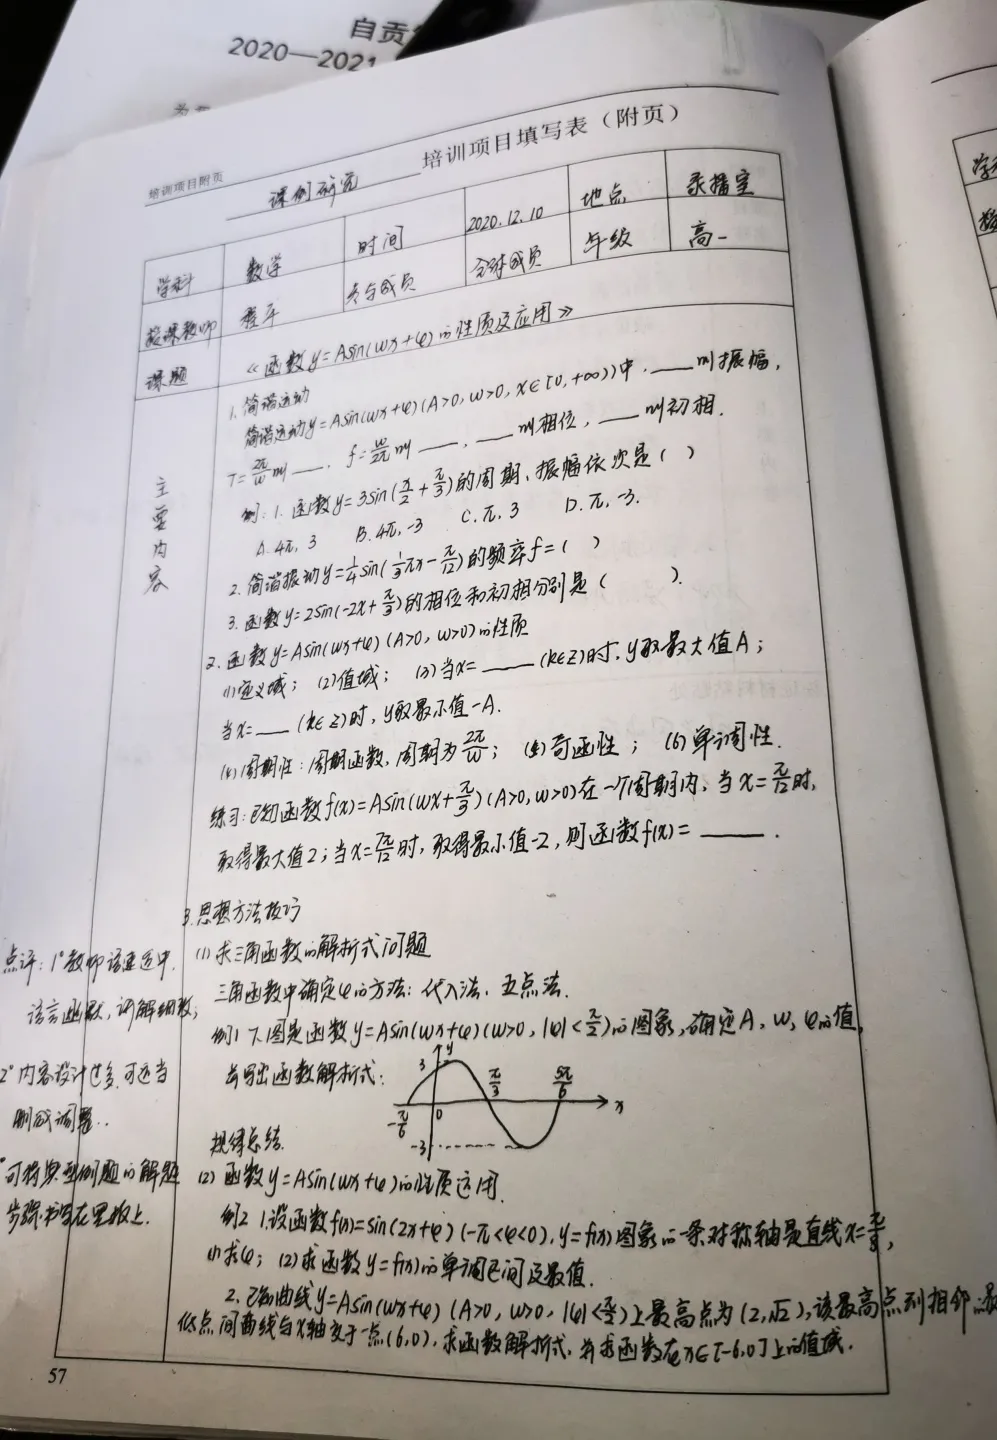 自贡
2020—2021
培训项目附页
课例研究 培训项目填写表（附页）
学科 数学 时间 2020.12.10 地点 录播室
授课教师 程平 参与成员 全体成员 年级 高一
课题 《函数y=Asin(ωx+φ)的性质及应用》
主要内容
1. 简谐运动
简谐运动y=Asin(ωx+φ)(A>0,ω>0,x∈[0,+∞))中，____叫振幅，
T=2π/ω叫____，f=ω/2π叫____，____叫相位，____叫初相．
例：1. 函数y=3sin(x/2+π/3)的周期、振幅依次是（ ）
A. 4π, 3 B. 4π, -3 C. π, 3 D. π, -3.
2. 简谐振动y=1/4sin(1/3πx-π/12)的频率f=（ ）
3. 函数y=2sin(-2x+π/3)的相位和初相分别是（ ）.
2. 函数y=Asin(ωx+φ)(A>0,ω>0)的性质
(1)定义域； (2)值域； (3)当x=____(k∈Z)时，y取最大值A；
当x=____(k∈Z)时，y取最小值-A.
(4)周期性：周期函数，周期为2π/ω； (5)奇函性； (6)单调性.
练习：已知函数f(x)=Asin(ωx+π/3)(A>0,ω>0)在一个周期内，当x=π/12时，
取得最大值2；当x=7π/12时，取得最小值-2，则函数f(x)=____.
3. 思想方法技巧
(1) 求三角函数的解析式问题
三角函数中确定φ的方法：代入法、五点法.
例1 下图是函数y=Asin(ωx+φ)(ω>0,|φ|<π/2)的图象，确定A、ω、φ的值，
并写出函数解析式：
y
3
π/3 5π/6
-π/6 0 x
-3
规律总结.
(2) 函数y=Asin(ωx+φ)的性质运用.
例2 1.设函数f(x)=sin(2x+φ)(-π<φ<0),y=f(x)图象的一条对称轴是直线x=π/8，
(1)求φ； (2)求函数y=f(x)的单调区间及最值.
2. 已知曲线y=Asin(ωx+φ)(A>0,ω>0,|φ|<π/2)上最高点为(2,√2),该最高点到相邻的最
低点间曲线与x轴交于一点(6,0),求函数解析式，并求函数在x∈[-6,0]上的值域.
点评：1°教师语速适中，
语言幽默，讲解细致；
2°内容设计过多，可适当
删减调整..
可将典型例题的解题
步骤书写在黑板上.
57